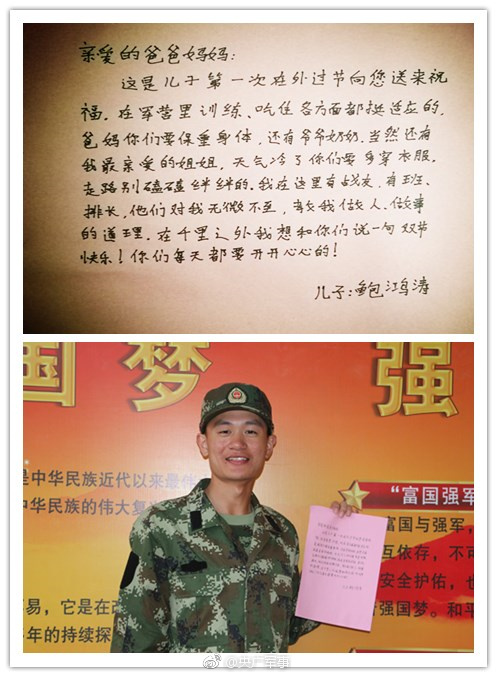 亲爱的爸爸妈妈:
这是儿子第一次在外过节向您送来祝
福。在军营里训练、吃住各方面都挺适应的,
爸妈你们要保重身体,还有爷爷奶奶,当然还有
我最亲爱的姐姐,天气冷了你们要多穿衣服,
走路别磕磕绊绊的。我在这里有战友,有班、
排长,他们对我无微不至,教我做人、做事
的道理。在千里之外我想和你们说一句双节
快乐!你们每天都要开开心心的!
儿子:鲍鸿涛
国梦 强
是中华民族近代以来最伟
中华民族的伟大复
易,它是在改
年的持续探
“富国强军
富国与强军,
互依存,不可
安全护佑,也
强国梦。和平
@央广军事